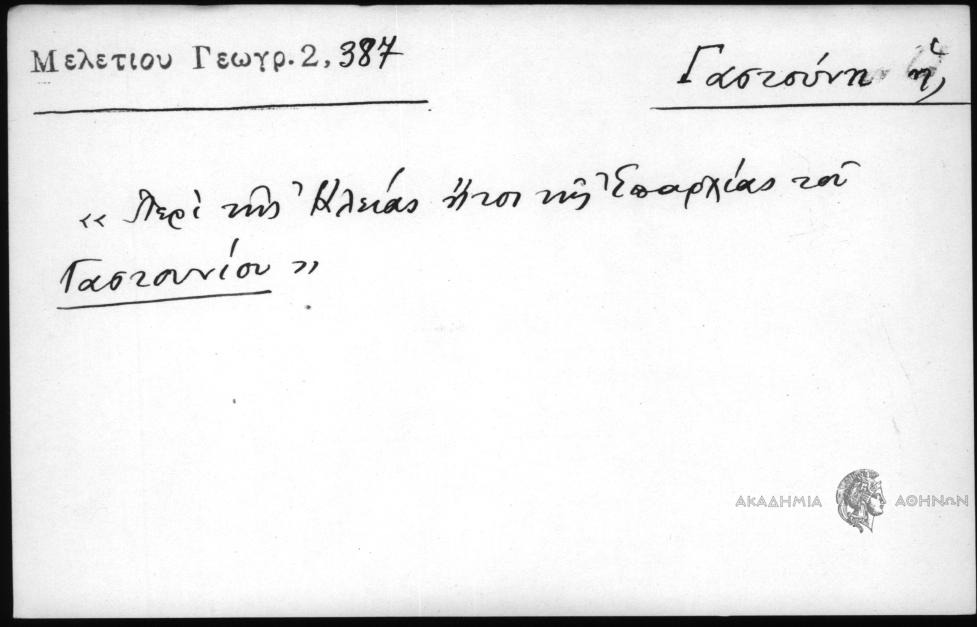 Μελετίου Γεωγρ. 2, 387
Γαστούνη ἡ,
« Περὶ τῆς Ἠλείας ἤτοι τῆς Ἐπαρχίας τοῦ
Γαστουνίου »
ΑΚΑΔΗΜΙΑ ΑΘΗΝΩΝ